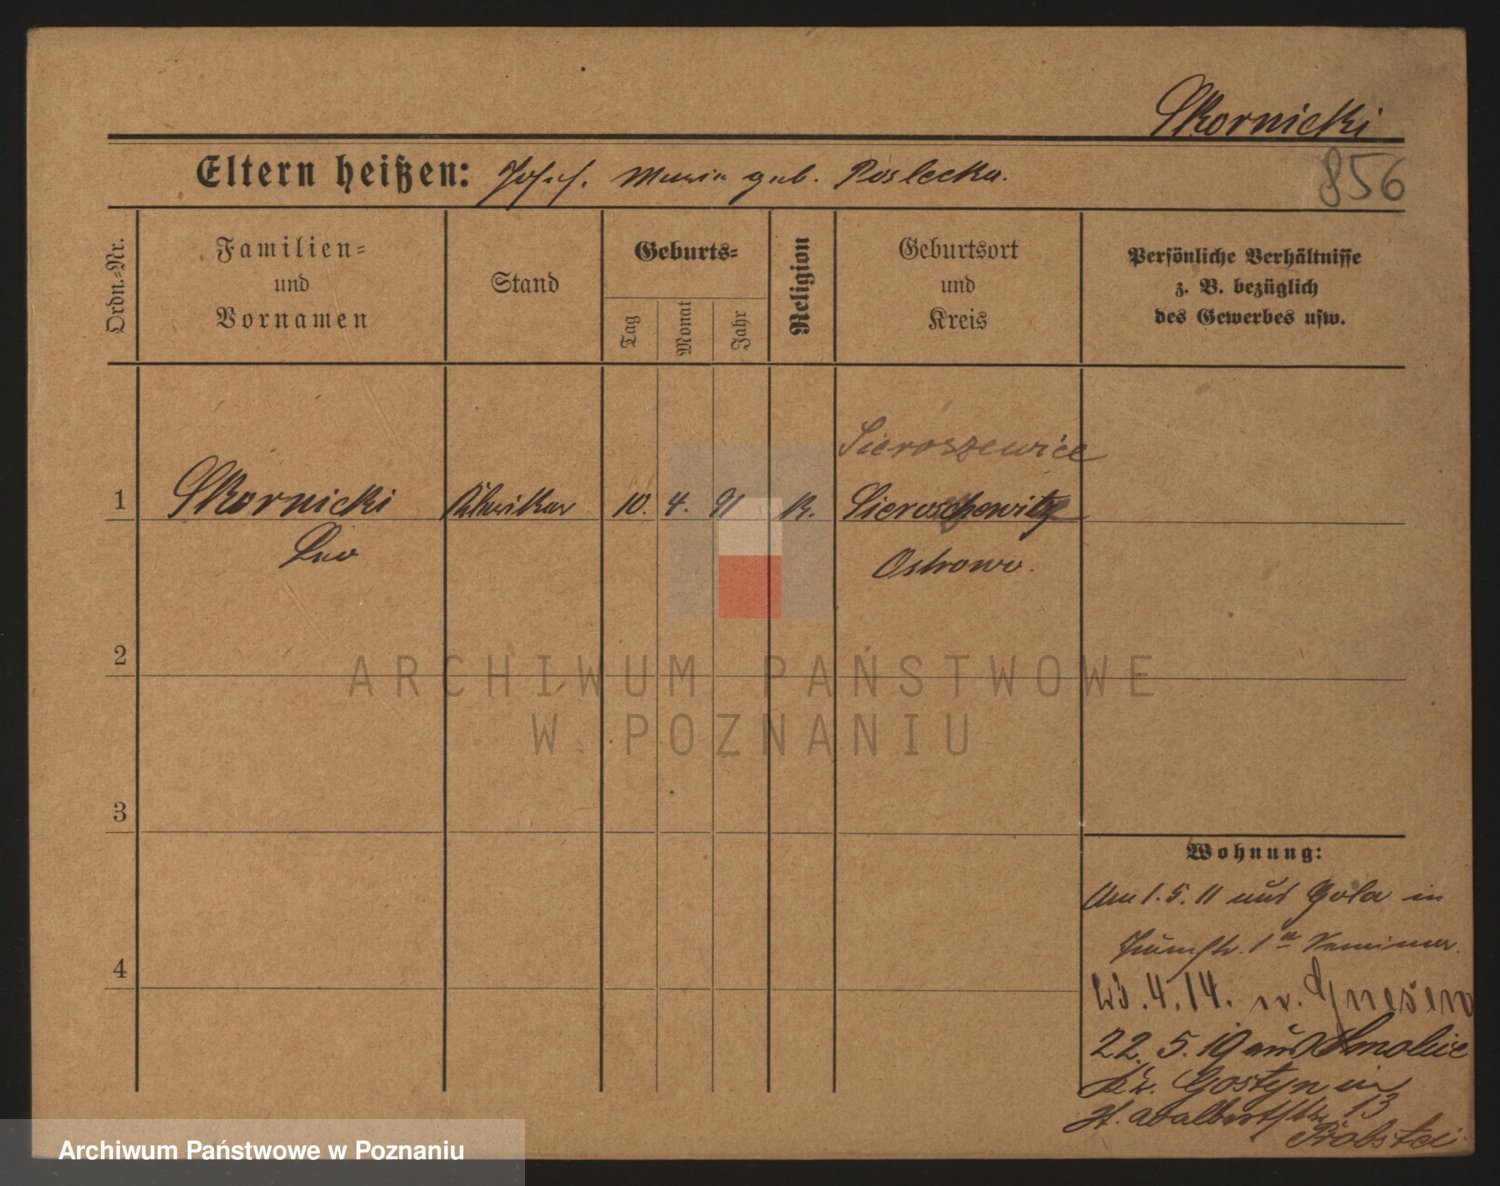 Skornicki
856
Eltern heißen: Josef. Maria geb. Poslecka.
Ordn.-Nr.
Familien-
und
Vornamen
Stand
Geburts-
Tag
Monat
Jahr
Religion
Geburtsort
und
Kreis
Persönliche Verhältnisse
z. B. bezüglich
des Gewerbes usw.
Sieroszewice
1 Skornicki 10. 4. 91 K. Sieroschewitz
Leo
Ostrowo.
2
3
4
Wohnung:
Am 1. 5. 11 aus Gola in
1
23. 4. 14. n. Gnesen
22. 5. 19 aus Smolice
Kr. Gostyn in
St. Adalbertstr. 13
Probstei
ARCHIWUM PAŃSTWOWE
W POZNANIU
Archiwum Państwowe w Poznaniu